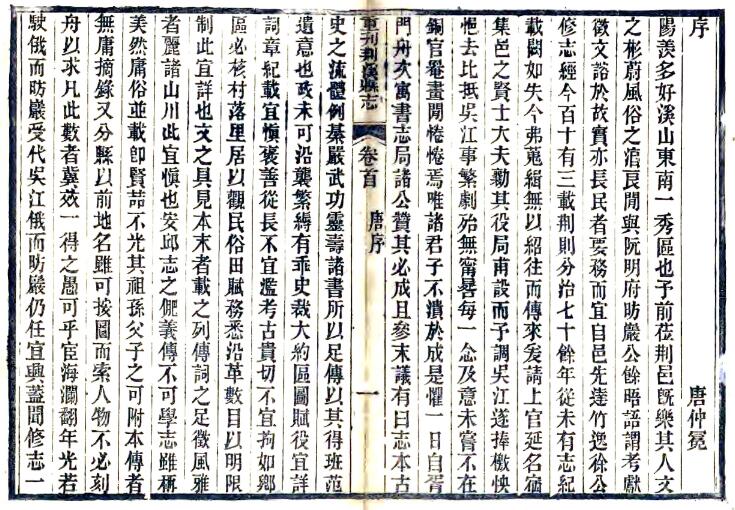 序　唐仲冕
陽羨多好溪山東南一秀區也予前莅荆邑旣樂其人文
之彬蔚風俗之淳良閒與阮明府昉巖公餘晤語謂考獻
徵文諮於故實亦長民者要務而宜自邑先達竹逸徐公
修志經今百十有三載荆則分治七十餘年從未有志紀
載闕如失今弗蒐緝無以紹往而傳來爰請上官延名宿
集邑之賢士大夫勷其役局甫設而予調吳江遂捧檄怏
怏去比抵吳江事繁劇殆無甯晷每一念及意未嘗不在
銅官罨畫閒惓惓焉唯諸君子不潰於成是懼一日自胥
門舟次寓書志局諸公贊其必成且參末議有曰志本古
重刊荆溪縣志　卷首　唐序　一
史之流體例綦嚴武功靈壽諸書所以足傳以其得班范
遺意也政未可沿襲繁縟有乖史裁大約區圖賦役宜詳
詞章紀載宜愼褒善從長不宜濫考古貴切不宜拘如鄉
區必核村落里居以觀民俗田賦務悉沿革數目以明限
制此宜詳也文之具見本末者載之列傳詞之足徵風雅
者麗諸山川此宜愼也安邱志之俪義傳不可學志雖稱
美然庸俗並載卽賢喆不光其祖孫父子之可附本傳者
無庸摘錄又分縣以前地名雖可按圖而索人物不必刻
舟以求凡此數者冀效一得之愚可乎宦海瀾翻年光若
駛俄而昉巖受代吳江俄而昉巖仍任宜興蓋聞修志一